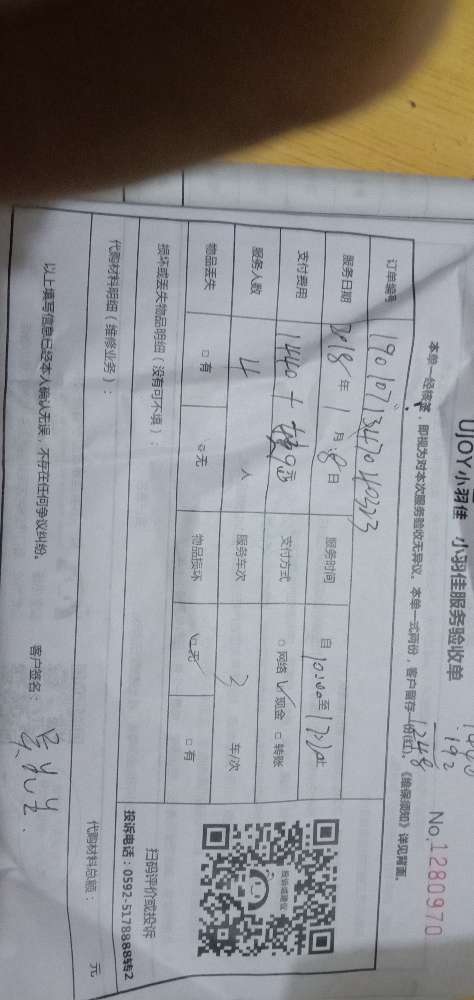 UJOY小羽佳 小羽佳服务验收单
No.1280970
本单一经核签，即视为对本次服务验收无异议。本单一式两份，客户留存一份(红)。《维保须知》详见背面。
1248
192
订单编号
服务日期 2018年1月8日 服务时间 自10:00至17:20止
支付费用 1440+ 元 支付方式 □网络 ☑现金 □转账
服务人数 4 人 服务车次 2 车/次
物品丢失 □有 ☑无 物品损坏 ☑无 □有
损坏或丢失物品明细（没有可不填）：
代购材料明细（维修业务）：
代购材料总额： 元
以上填写信息已经本人确认无误，不存在任何争议纠纷。
客户签名：吴先生
投诉或建议
扫码评价或投诉
投诉电话：0592-5178888转2